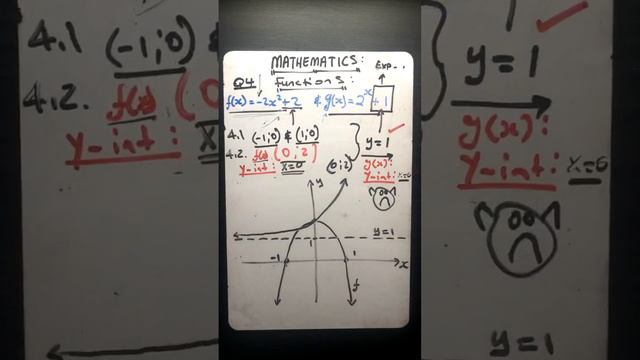 MATHEMATICS:
EXP...
Q4 functions:
f(x)=-2x²+2 & g(x)=2ˣ+1
4.1 (-1;0) & (1;0)
y=1
4.2. f(x) (0;2)
y-int: x=0
(0;2)
g(x):
y-int: x=0
y
y=1
1
-1
1
x
f
4.1 (-1;0)
4.2. f(x) (
y-int:
y=1
g(x):
y-int: x=0
y=1